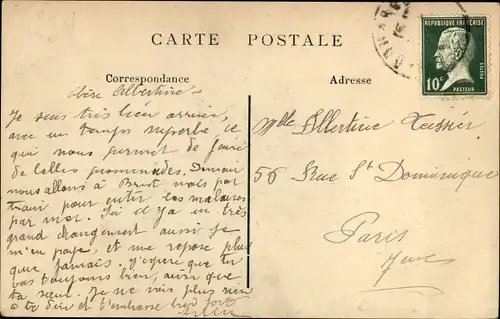 CARTE POSTALE
Correspondance
Adresse
RÉPUBLIQUE FRANÇAISE
10c
POSTES
PASTEUR
Chère Albertine
Je suis très bien arrivée
avec un temps superbe ce
qui nous permet de faire
de belles promenades. Demain
nous allons à Brest mais par
train pour éviter les malaises
par mer. J'ai il y a un très
grand changement aussi je
m'en paye et me repose plus
que jamais. J'espère que tu
vas toujours bien, ainsi que
ta sœur. Je ne vois plus rien
à te dire et t'embrasse bien fort
Mlle Albertine Tessier
56 Rue St Dominique
Paris